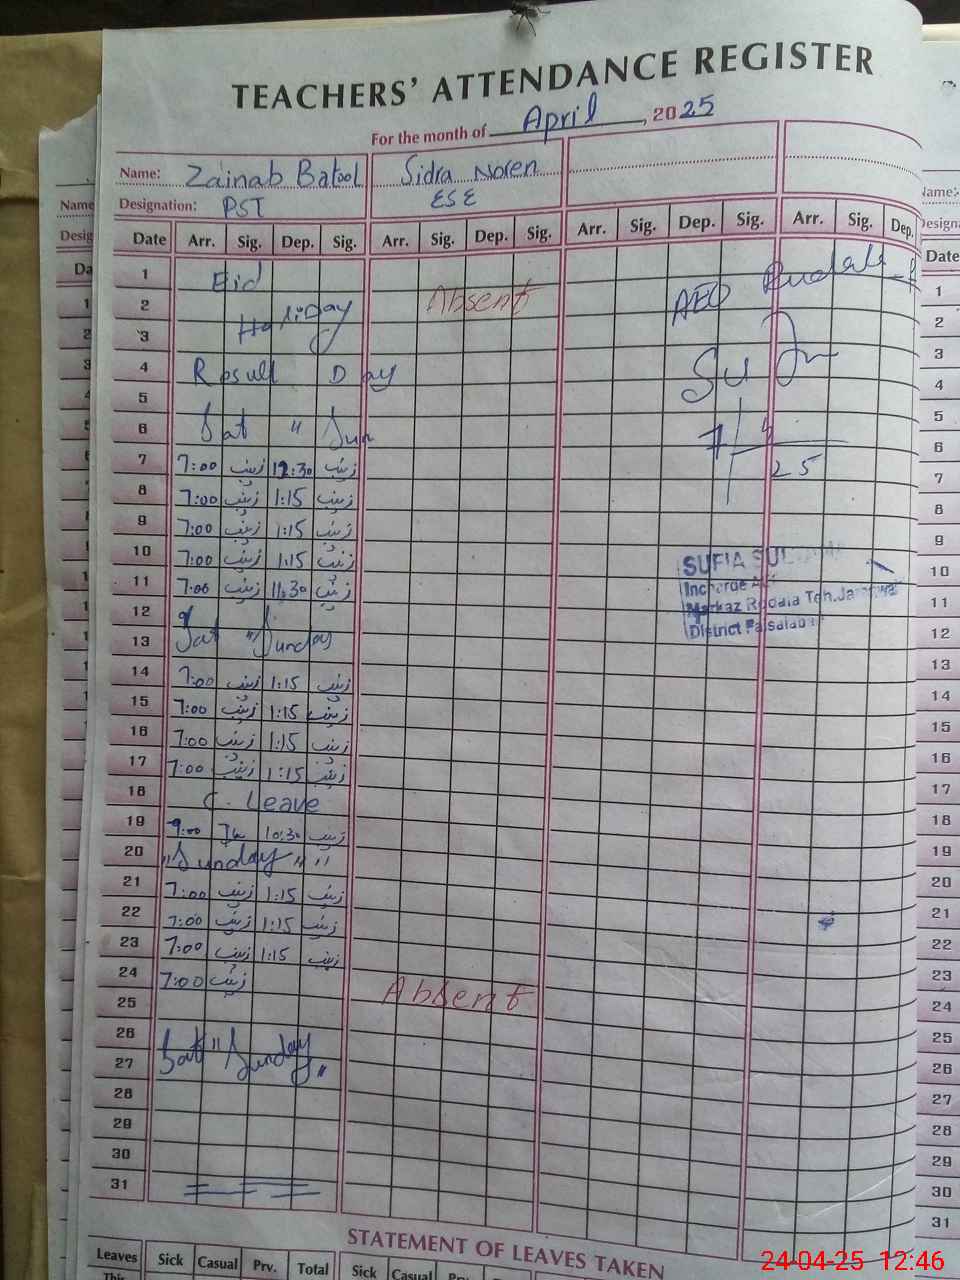 TEACHERS' ATTENDANCE REGISTER
For the month of April, 2025
Name: Zainab Batool Sidra Noren
Designation: PST ESE
Date Arr. Sig. Dep. Sig. Arr. Sig. Dep. Sig. Arr. Sig. Dep. Sig. Arr. Sig. Dep.
1 Eid
2 Holiday Absent AEO
3
4 Result Day
5
6 Sat " Sun
7 7:00 زینب 12:30 زینب 7/4/25
8 7:00 زینب 1:15 زینب
9 7:00 زینب 1:15 زینب
10 7:00 زینب 1:15 زینب
11 7:00 زینب 11:30 زینب
12
13 Sat " Sunday
SUFIA SUL
Incharge
Markaz Rodala Teh. Jaranwala
District Faisalabad
14 7:00 زینب 1:15 زینب
15 7:00 زینب 1:15 زینب
16 7:00 زینب 1:15 زینب
17 7:00 زینب 1:15 زینب
18 C. Leave
19 9:00 10:30 زینب
20 "Sunday" "
21 7:00 زینب 1:15 زینب
22 7:00 زینب 1:15 زینب
23 7:00 زینب 1:15 زینب
24 7:00 زینب
25 Absent
26
27 Sat " Sunday "
28
29
30
31
STATEMENT OF LEAVES TAKEN
Leaves Sick Casual Prv. Total Sick Casual
This
24-04-25 12:46